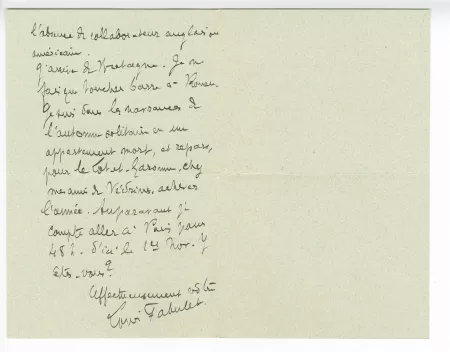 l'absence de collaborateur anglais ou
américain.
J'arrive de Bretagne. Je n'
fais que toucher barre à Rouen.
Je suis dans les
l'automne solitaire en un
appartement mort, et repars,
pour le Lot-et-Garonne, chez
mes amis de Védrines, achever
l'année. Auparavant je
compte aller à Paris pour
48 h. d'ici le 17 Nov. Y
êtes-vous?
Affectueusement vôtre
Louis Fabulet.